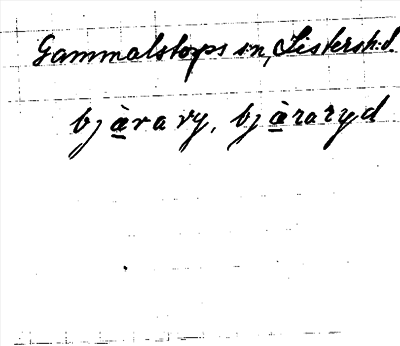 Gammalstorps sn, Listers hd
bjàra ry, bjàraryd